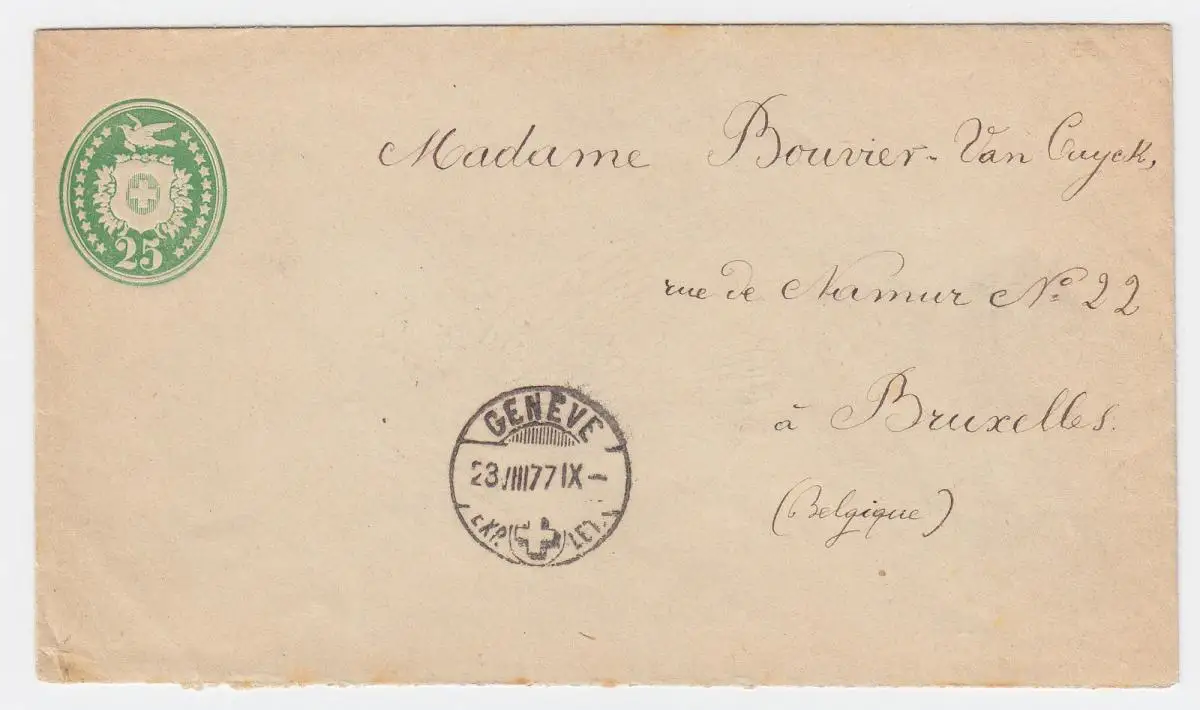 25
Madame Bouvier-Van Cuyck,
rue de Namur Nº 22
à Bruxelles.
(Belgique)
GENÈVE
23.VIII77 IX –
EXP. LET.